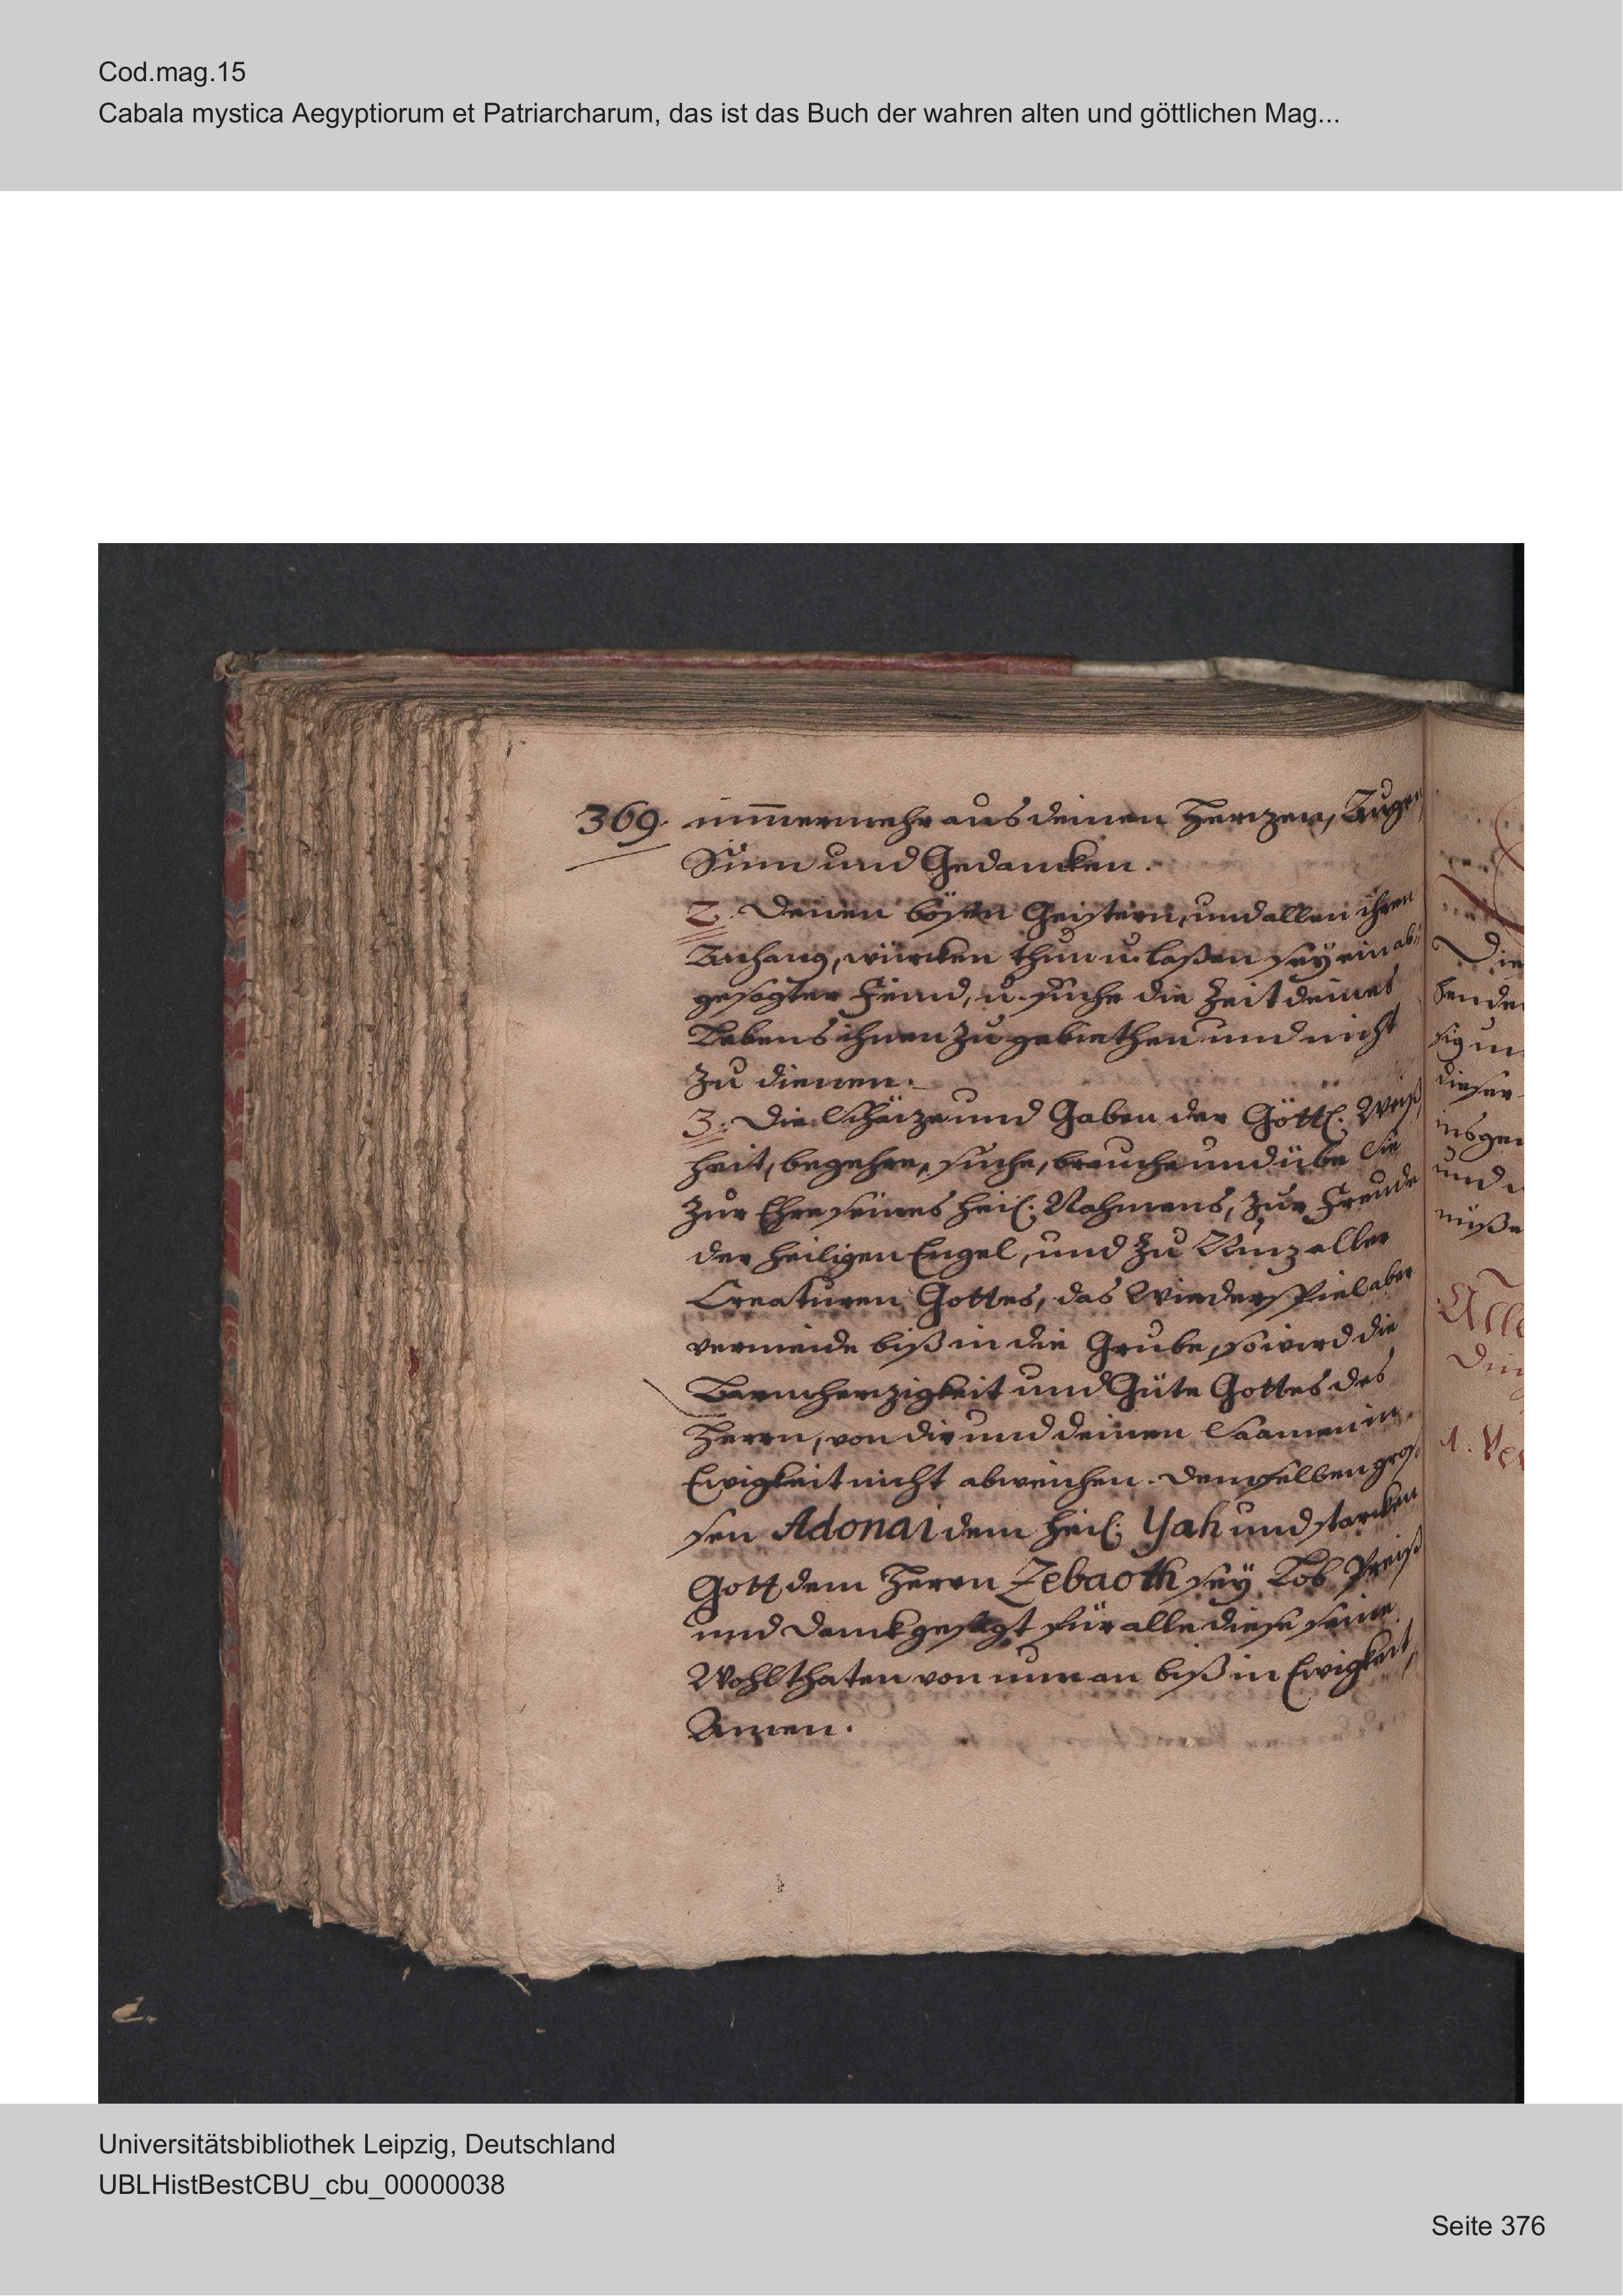 Cod.mag.15
Cabala mystica Aegyptiorum et Patriarcharum, das ist das Buch der wahren alten und göttlichen Mag...
369. nim̅ermehr aus deinen Herzen, Augen
Sinn und Gedancken.
2. Denen bösen Geistern, und allen ihren
Anhang, würcken thun u. laßen sey ein ab⸗
gesagter Feind, u. suche die Zeit deines
Lebens ihnen zu gebiethen und nicht
zu dienen.
3. Die Schäze und Gaben der Göttl. Weiß
heit, begehre, suche, brauche und übe Sie
zur Ehre seines heil. Nahmens, zur Freude
der heiligen Engel, und zu Nuz aller
Creaturen Gottes, das Wiederspiel aber
vermeide biß in die Grube, so wird die
Barmherzigkeit und Güte Gottes des
Herrn, von dir und deinen Saamen in
Ewigkeit nicht abweichen. Demselben gros⸗
sen Adonai dem heil. Yah und starcken
Gott dem Herrn Zebaoth sey Lob Preiß
und Danck gesagt für alle diese seine
Wohlthaten von nun an biß in Ewigkeit,
Amen.
Die
sig un
dieser
insgem
und
müße
Alle
Din
1. Ver
Universitätsbibliothek Leipzig, Deutschland
UBLHistBestCBU_cbu_00000038
Seite 376